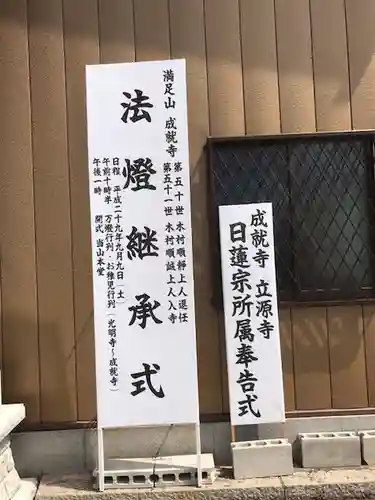 満足山 成就寺
第五十世 木村順靜上人退任
第五十一世 木村順誠上人入寺
法燈継承式
日程 平成二十九年九月九日（土）
午前十時半 万燈行列・お稚児行列（光明寺〜成就寺）
午後一時 開式 当山本堂
成就寺 立源寺
日蓮宗所属奉告式